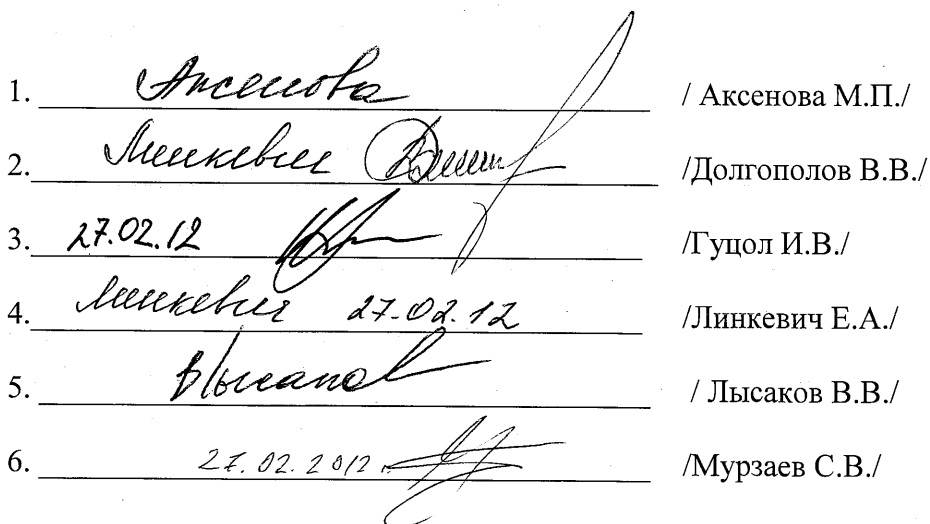 1. Аксенова / Аксенова М.П./
2. Линкевич /Долгополов В.В./
3. 27.02.12 /Гуцол И.В./
4. Линкевич 27.02.12 /Линкевич Е.А./
5. Лысаков / Лысаков В.В./
6. 27.02.2012 г. /Мурзаев С.В./